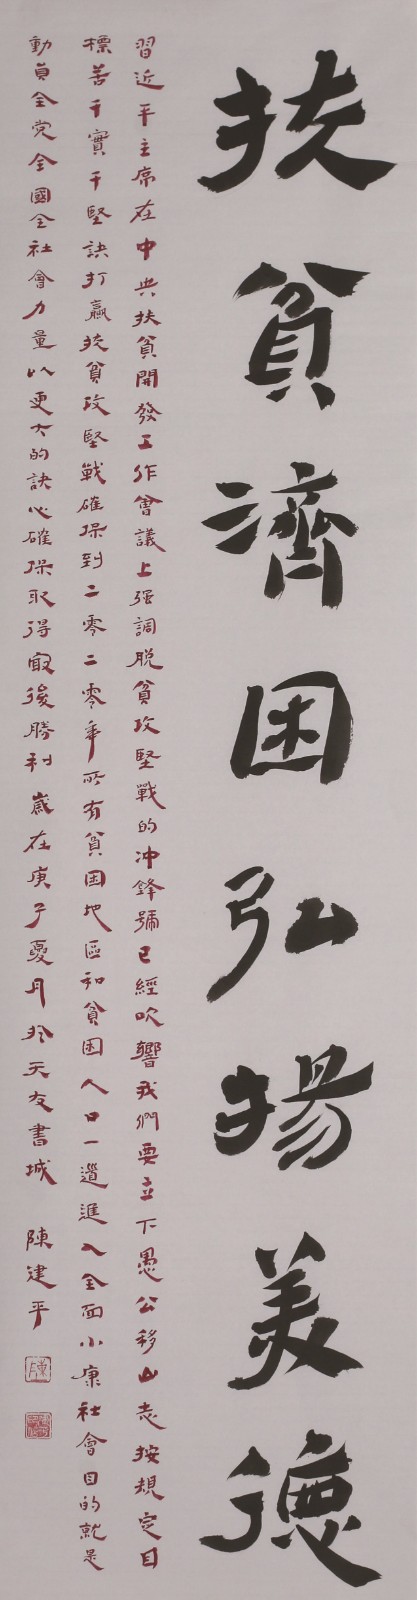 扶貧濟困弘揚美德
習近平主席在中央扶貧開發工作會議上强調脱貧攻堅戰的冲鋒號已經吹響我們要立下愚公移山志按規定目
標苦干實干堅訣打贏扶貧攻堅戰確保到二零二零年所有貧困地區和貧困人口一道進入全面小康社會目的就是
動員全党全國全社會力量以更大的訣心確保取得最後勝利 歲在庚子夏月於天友書城 陳建平